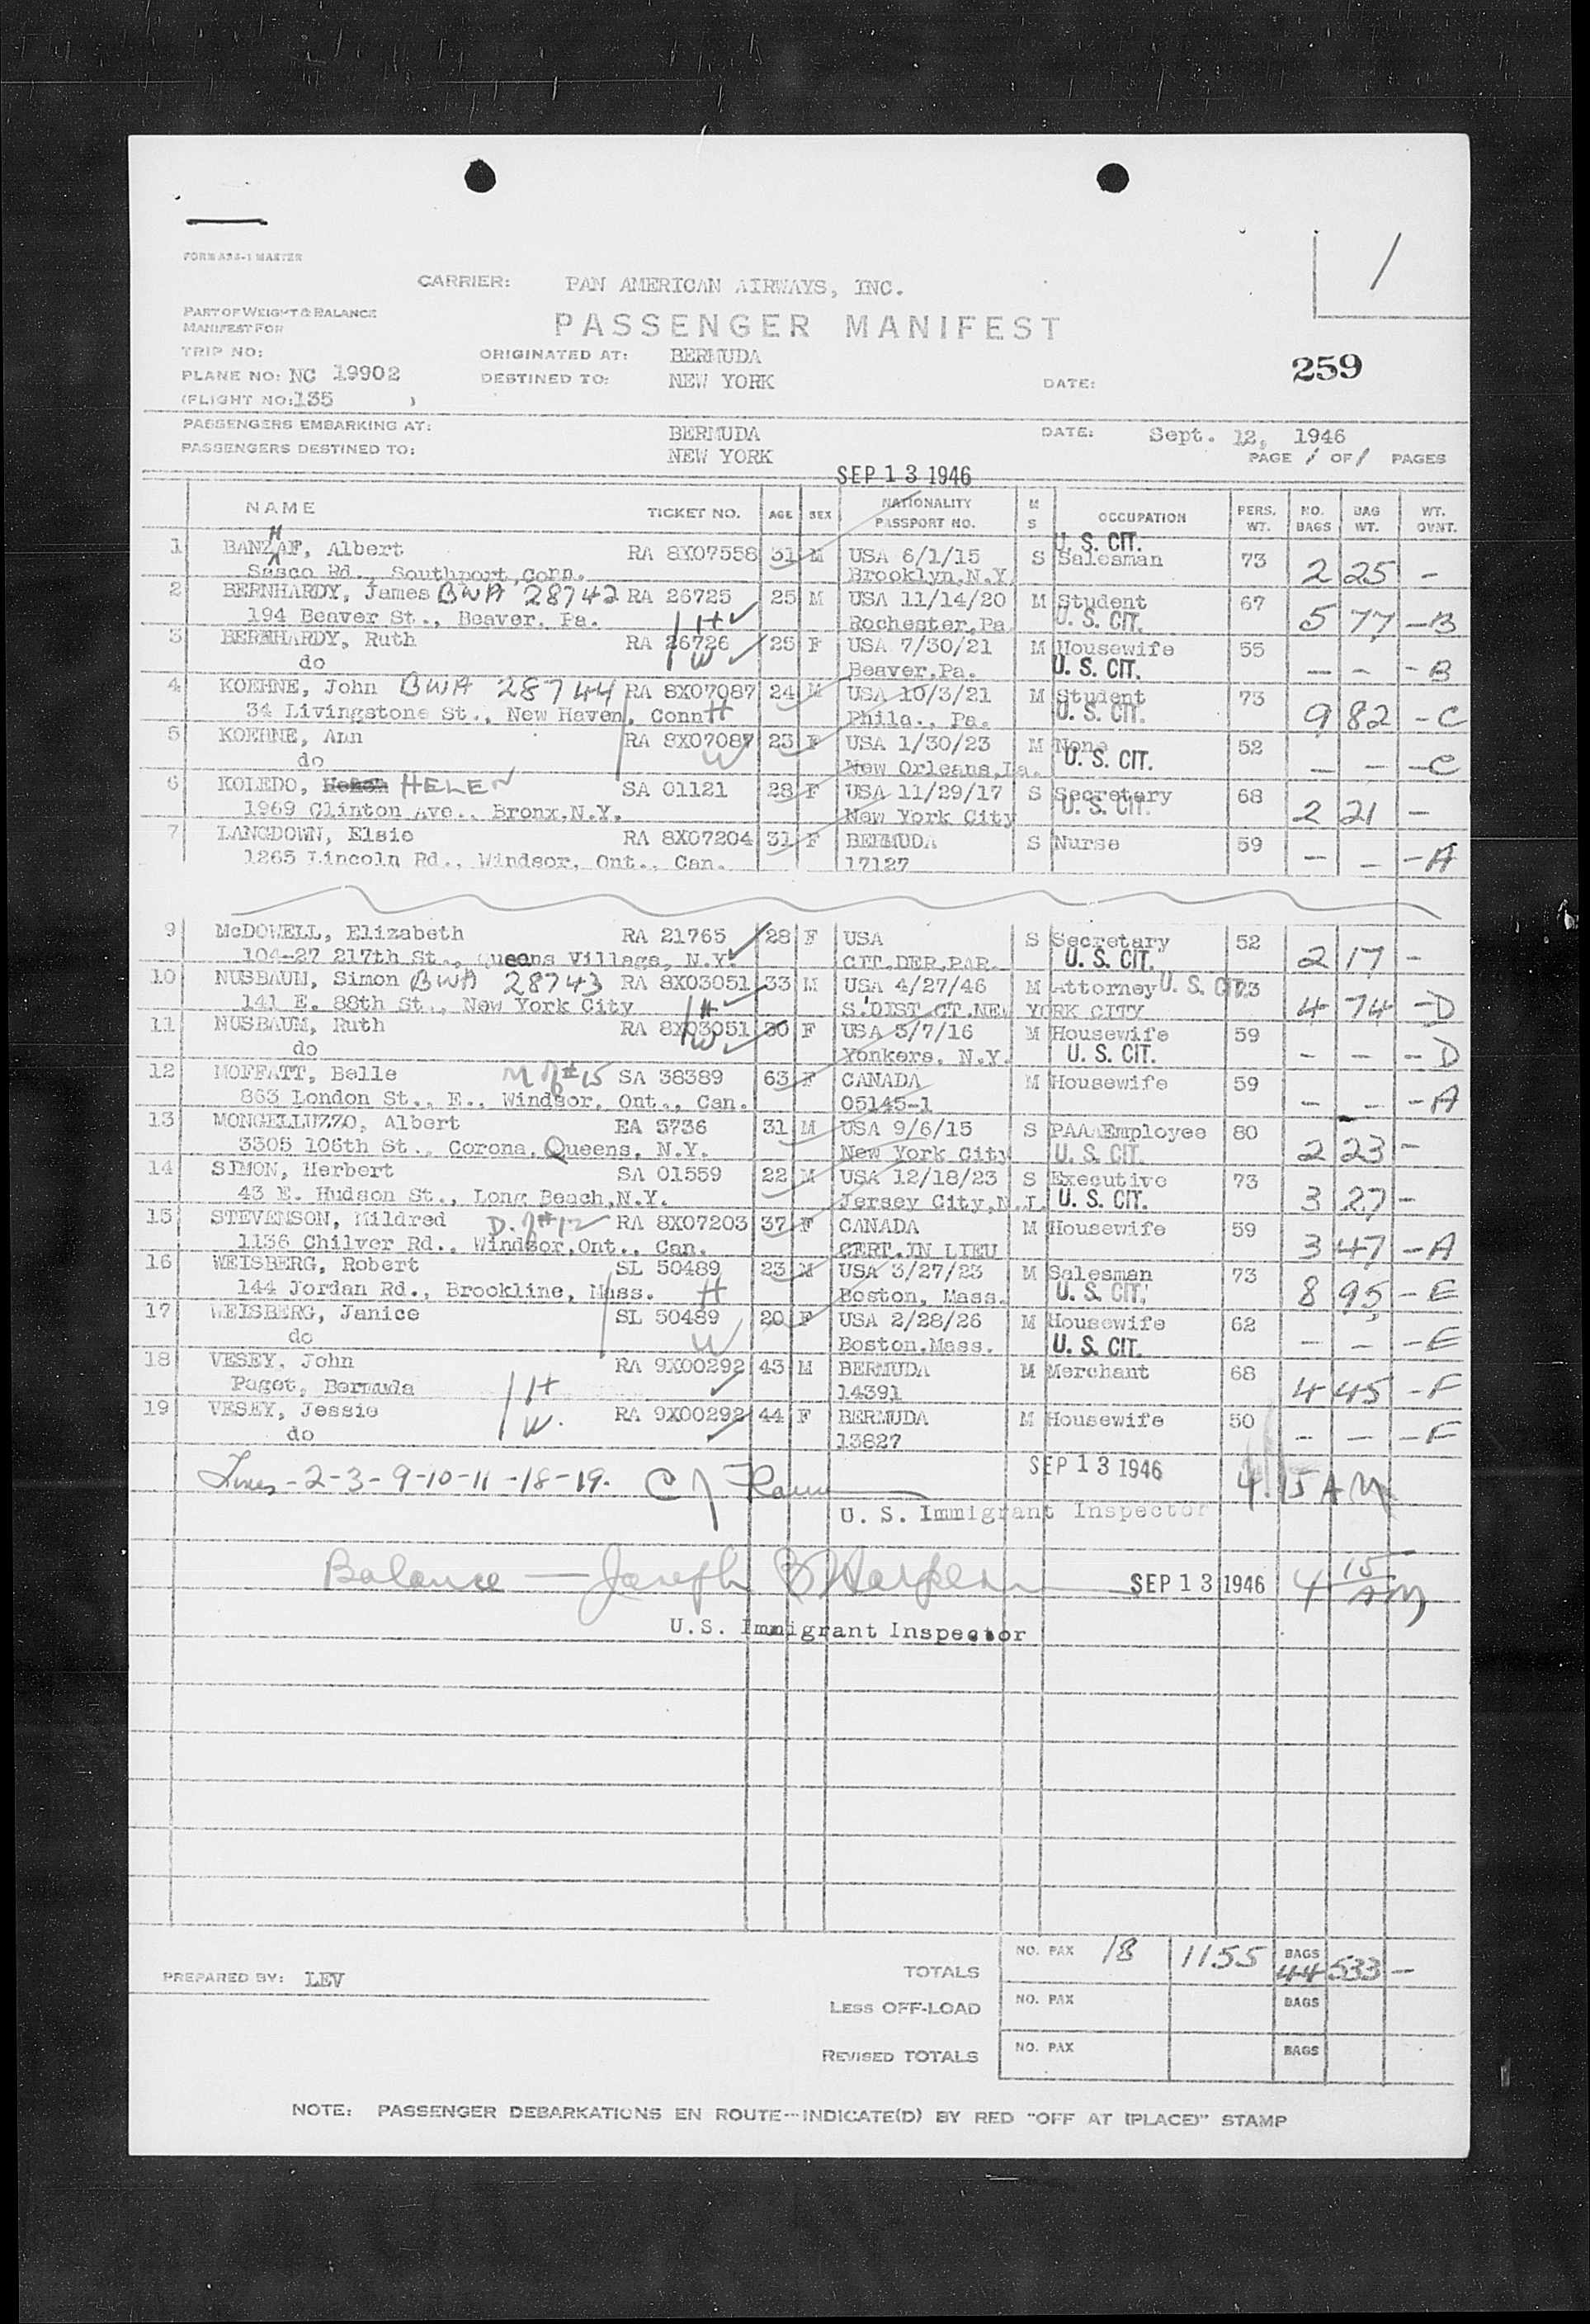 FORM ASS-1 MASTER
CARRIER: PAN AMERICAN AIRWAYS, INC.
PART OF WEIGHT & BALANCE
MANIFEST FOR
PASSENGER MANIFEST
TRIP NO: ORIGINATED AT: BERMUDA
PLANE NO: NC 19902 DESTINED TO: NEW YORK DATE: 259
(FLIGHT NO: 135 )
PASSENGERS EMBARKING AT: BERMUDA DATE: Sept. 12, 1946
PASSENGERS DESTINED TO: NEW YORK PAGE 1 OF 1 PAGES
SEP 13 1946
NAME TICKET NO. AGE SEX NATIONALITY PASSPORT NO. M S OCCUPATION PERS. WT. NO. BAGS BAG WT. WT. OVNT.
1 BANZHAF, Albert RA 8X07558 31 M USA 6/1/15 S Salesman U. S. CIT. 73 2 25 -
Sasco Rd., Southport, Conn. Brooklyn, N.Y.
2 BERNHARDY, James BWA 28742 RA 26725 25 M USA 11/14/20 M Student 67 5 77 -B
194 Beaver St., Beaver, Pa. H Rochester, Pa. U. S. CIT.
3 BERNHARDY, Ruth RA 26726 25 F USA 7/30/21 M Housewife 55 - - -B
do W Beaver, Pa. U. S. CIT.
4 KOEHNE, John BWA 28744 RA 8X07087 24 M USA 10/3/21 M Student 73 9 82 -C
34 Livingstone St., New Haven, Conn H Phila., Pa. U. S. CIT.
5 KOEHNE, Ann RA 8X07087 23 F USA 1/30/23 M None 52 - - -C
do W New Orleans, La. U. S. CIT.
6 KOLEDO, HELEN SA 01121 28 F USA 11/29/17 S Secretary 68 2 21 -
1969 Clinton Ave., Bronx, N.Y. New York City U. S. CIT.
7 LANGDOWN, Elsie RA 8X07204 31 F BERMUDA S Nurse 59 - - -A
1265 Lincoln Rd., Windsor, Ont., Can. 17127
9 McDOWELL, Elizabeth RA 21765 28 F USA S Secretary 52 2 17 -
104-27 217th St., Queens Village, N.Y. CIT.DER.PAR. U. S. CIT.
10 NUSBAUM, Simon BWA 28743 RA 8X03051 33 M USA 4/27/46 M Attorney U. S. CIT. 73 4 74 -D
141 E. 88th St., New York City H S. DIST CT.NEW YORK CITY
11 NUSBAUM, Ruth RA 8X03051 30 F USA 5/7/16 M Housewife 59 - - -D
do W Yonkers, N.Y. U. S. CIT.
12 MOFFATT, Belle M of #15 SA 38389 63 F CANADA M Housewife 59 - - -A
863 London St., E., Windsor, Ont., Can. 05145-1
13 MONGELLUZZO, Albert EA 3736 31 M USA 9/6/15 S PAA Employee 80 2 23 -
3305 106th St., Corona, Queens, N.Y. New York City U. S. CIT.
14 SIMON, Herbert SA 01559 22 M USA 12/18/23 S Executive 73 3 27 -
43 E. Hudson St., Long Beach, N.Y. Jersey City, N.J. U. S. CIT.
15 STEVENSON, Mildred D. of #12 RA 8X07203 37 F CANADA M Housewife 59 3 47 -A
1136 Chilver Rd., Windsor, Ont., Can. CERT.IN LIEU
16 WEISBERG, Robert SL 50489 23 M USA 3/27/23 M Salesman 73 8 95 -E
144 Jordan Rd., Brookline, Mass. H Boston, Mass. U. S. CIT.
17 WEISBERG, Janice SL 50489 20 F USA 2/28/26 M Housewife 62 - - -E
do W Boston, Mass. U. S. CIT.
18 VESEY, John RA 9X00292 43 M BERMUDA M Merchant 68 4 45 -F
Paget, Bermuda H 14391
19 VESEY, Jessie RA 9X00292 44 F BERMUDA M Housewife 50 - - -F
do W. 13827
Lines -2-3-9-10-11-18-19. SEP 13 1946 4.15 AM
U. S. Immigrant Inspector
Balance — Joseph SEP 13 1946 4 15 AM
U.S. Immigrant Inspector
TOTALS NO. PAX 18 1155 BAGS 44 533 -
PREPARED BY: LEV
LESS OFF-LOAD NO. PAX BAGS
REVISED TOTALS NO. PAX BAGS
NOTE: PASSENGER DEBARKATIONS EN ROUTE--INDICATE(D) BY RED "OFF AT (PLACE)" STAMP